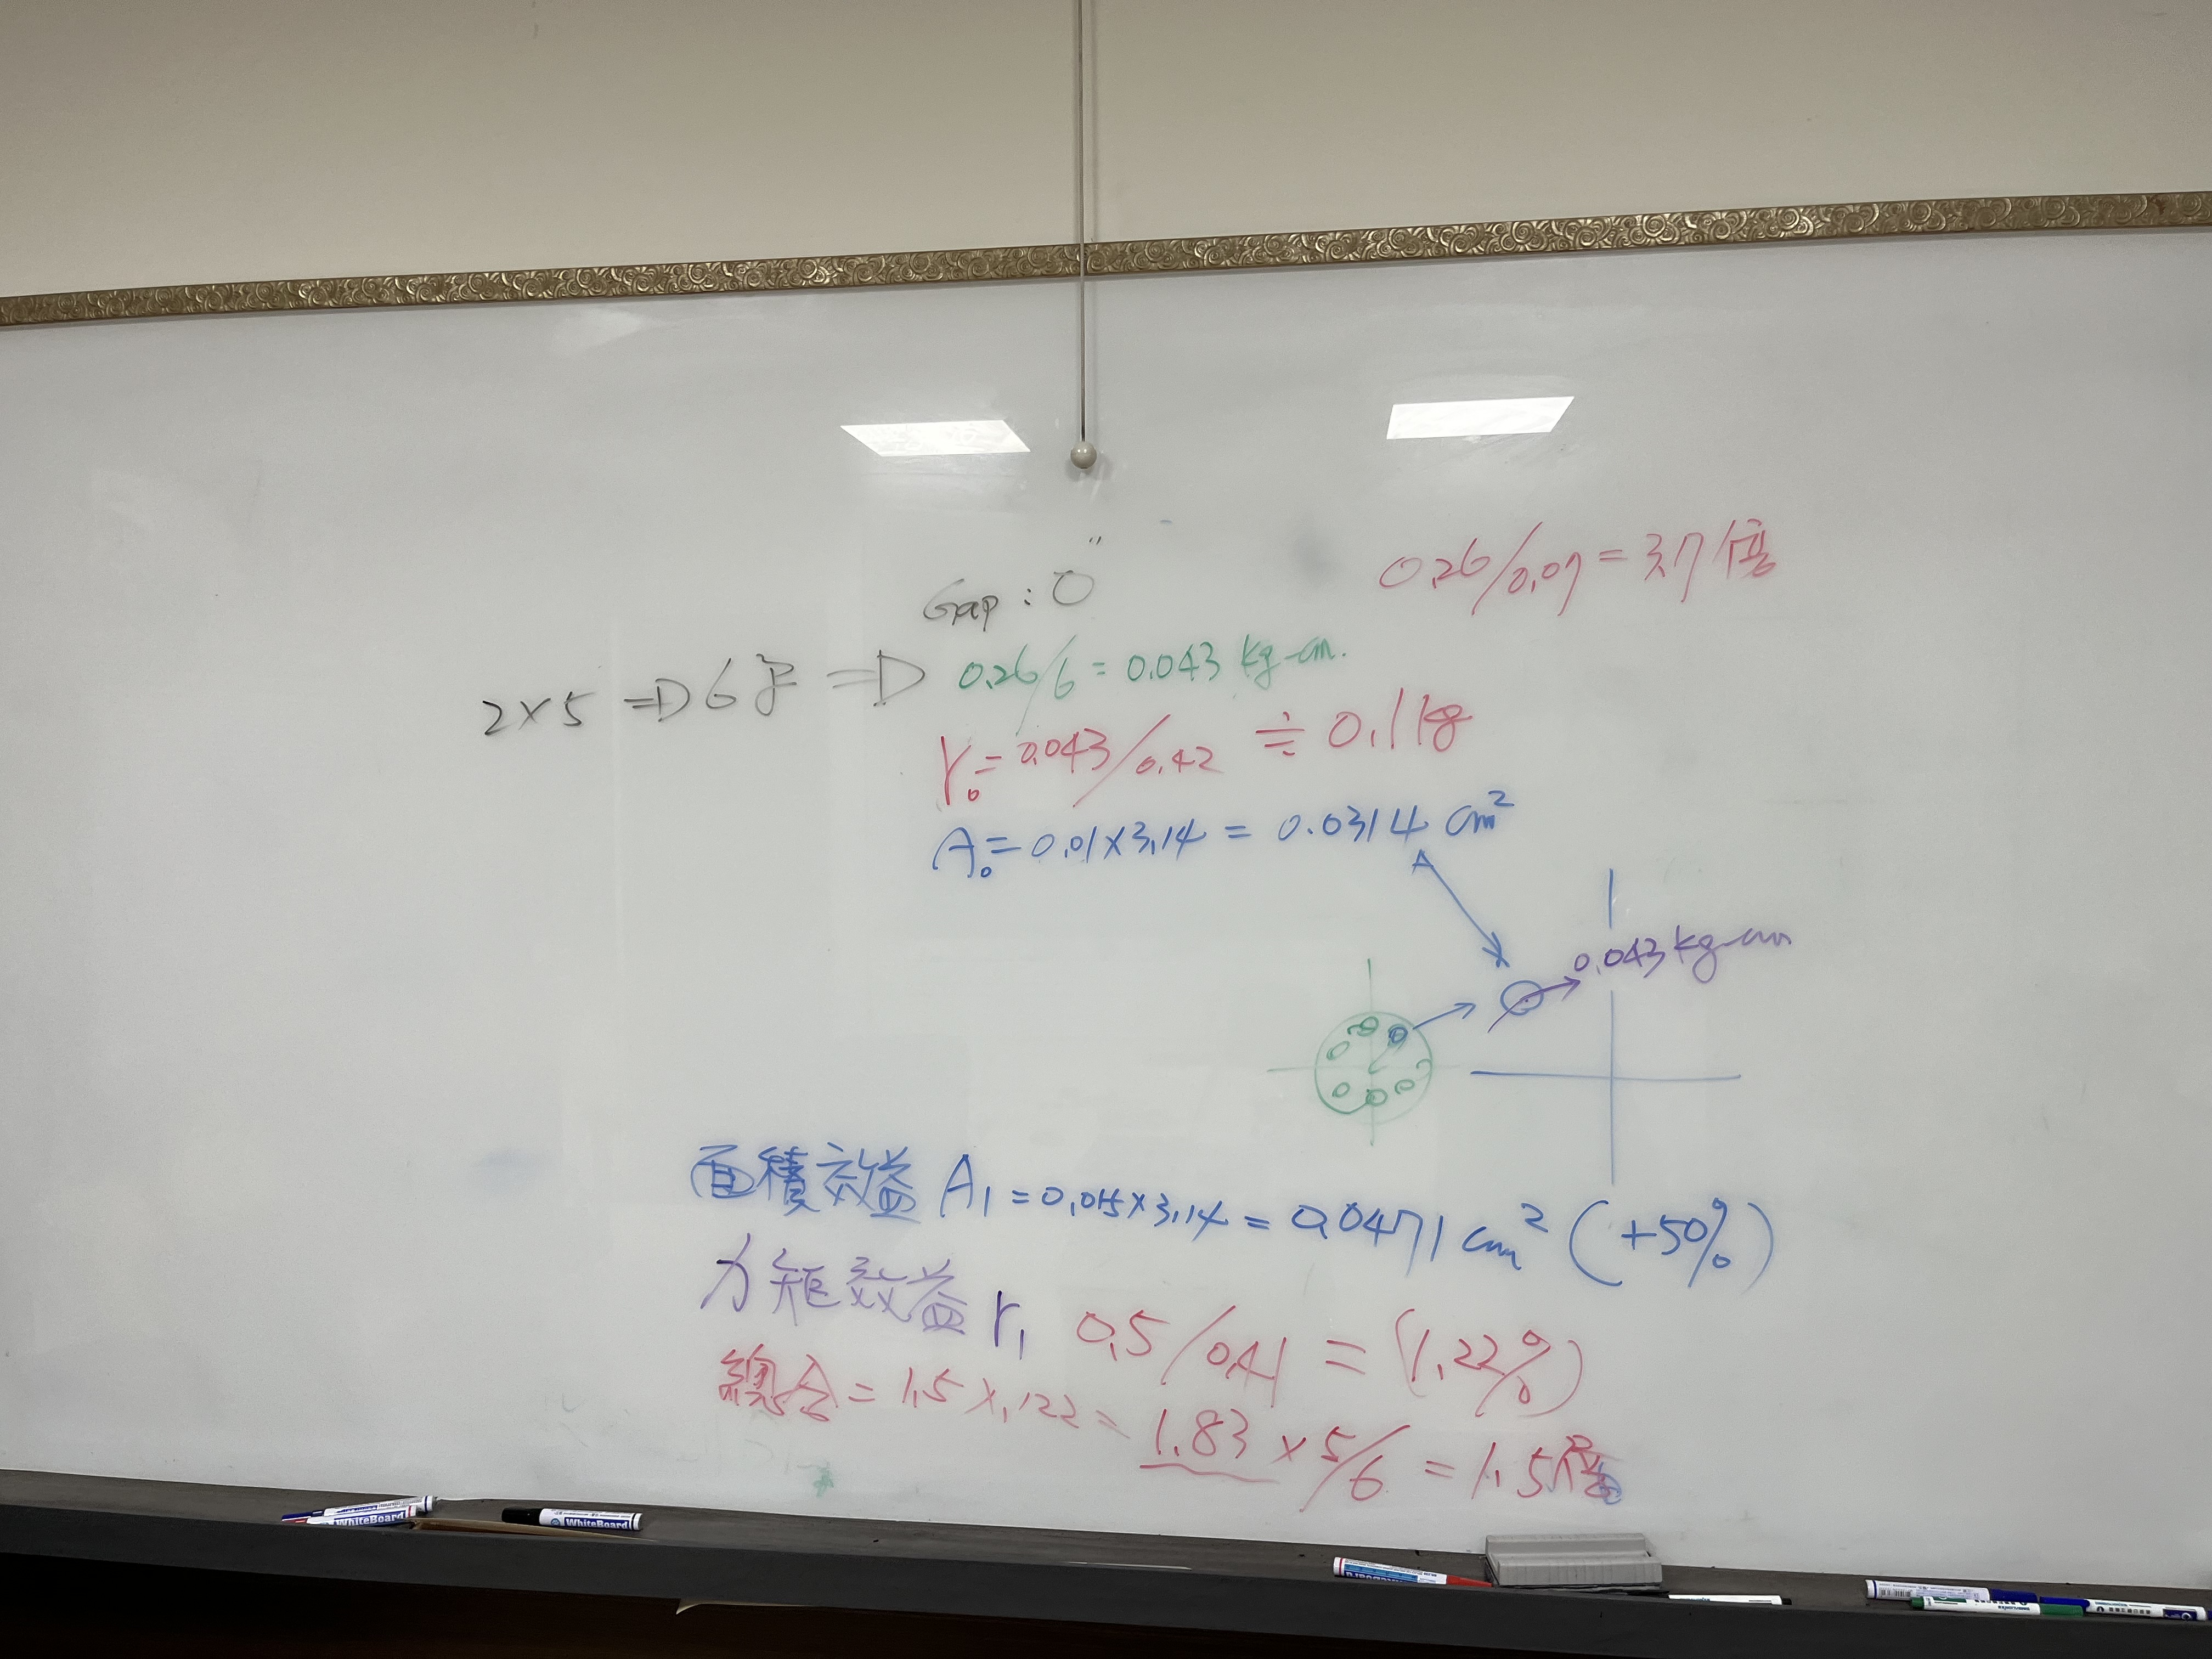 Gap : 0"
0.26/0.07 = 3.7倍
2×5 ⇒ 6字 ⇒ 0.26/6 = 0.043 kg-cm.
r₀ = 0.043/0.42 ≑ 0.1kg
A₀ = 0.01×3.14 = 0.0314 cm²
0.043 kg-cm
面積效益 A₁ = 0.015×3.14 = 0.0471 cm² (+50%)
力矩效益 r₁ 0.5/0.41 = (1.22%)
總合 = 1.5 ×.122 = 1.83 × 5/6 = 1.5倍
WhiteBoard
WhiteBoard